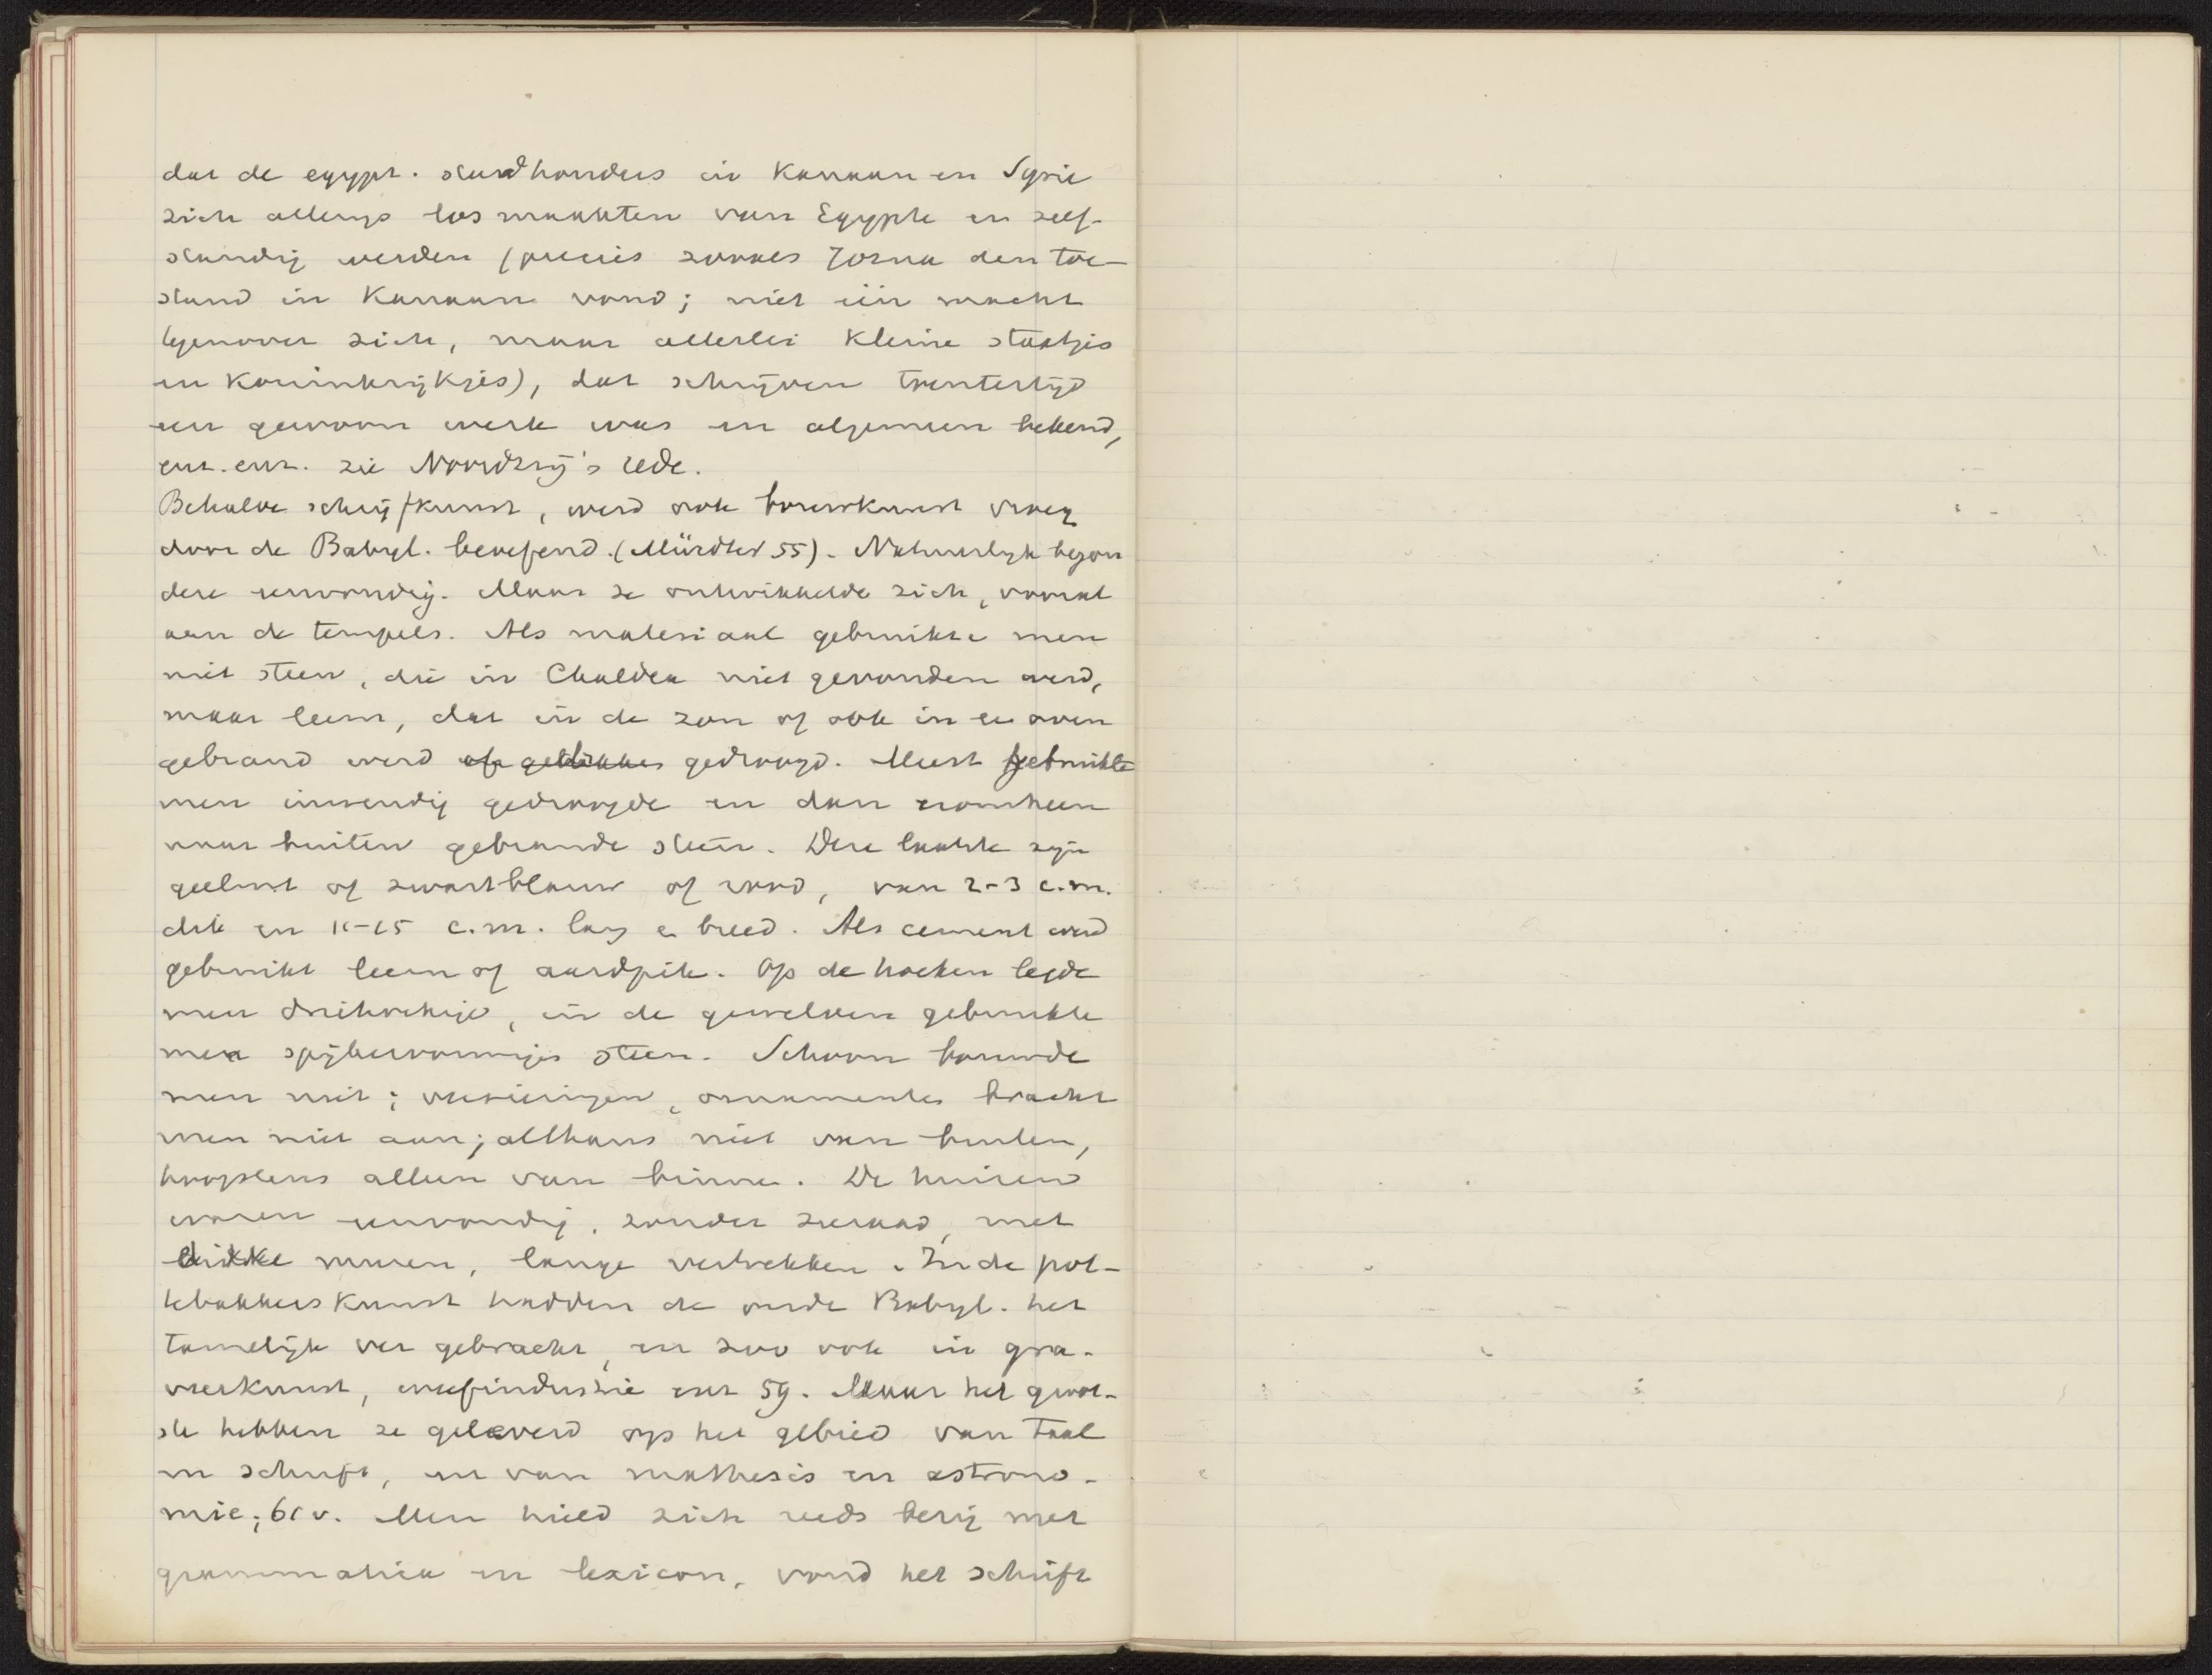 dat de egypt. stadhouders in Kanaan en Syrie
zich allengs losmaakten van Egypte en zelf-
standig werden (precies zooals Jozua den toe-
stand in Kanaan vond; niet één macht
tegenover zich, maar allerlei kleine staatjes
en koninkrijkjes), dat schrijven toentertijd
een gewoon werk was en algemeen bekend,
enz. enz. zie Noordzij's rede.
Behalve schrijfkunst, werd ook bouwkunst vroeg
door de Babyl. beoefend. (Mürdter 55). Natuurlijk begon
deze eenvoudig. Maar ze ontwikkelde zich, vooral
aan de tempels. Als materiaal gebruikte men
niet steen, die in Chaldea niet gevonden werd,
maar leem, dat in de zon of ook in een oven
gebrand werd of gebakken gedroogd. Meest gebruikte
men inwendig gedroogde en dan eromheen
naar buiten gebrande steen. Deze laatste zijn
geelrood of zwartblauw of rood, van 2-3 c.m.
dik en 11-15 c.m. lang en breed. Als cement werd
gebruikt leem of aardpik. Op de hoeken legde
men driehoekige, in de gewelven gebruikte
men spijkervormige steen. Schoon bouwde
men niet; versieringen, ornamenten bracht
men niet aan; althans niet van buiten,
hoogstens alleen van binnen. De huizen
waren eenvoudig, zonder sieraad, met
dikke muren, lange vertrekken. In de pot-
tebakkerskunst hadden de oude Babyl. het
tamelijk ver gebracht, en zoo ook in gra-
veerkunst, weefindustrie enz 59. Maar het groot-
ste hebben ze geleverd op het gebied van taal
en schrift, en van mathesis en astrono-
mie; 61 v. Men hield zich reeds bezig met
grammatica en lexicon, vond het schrift